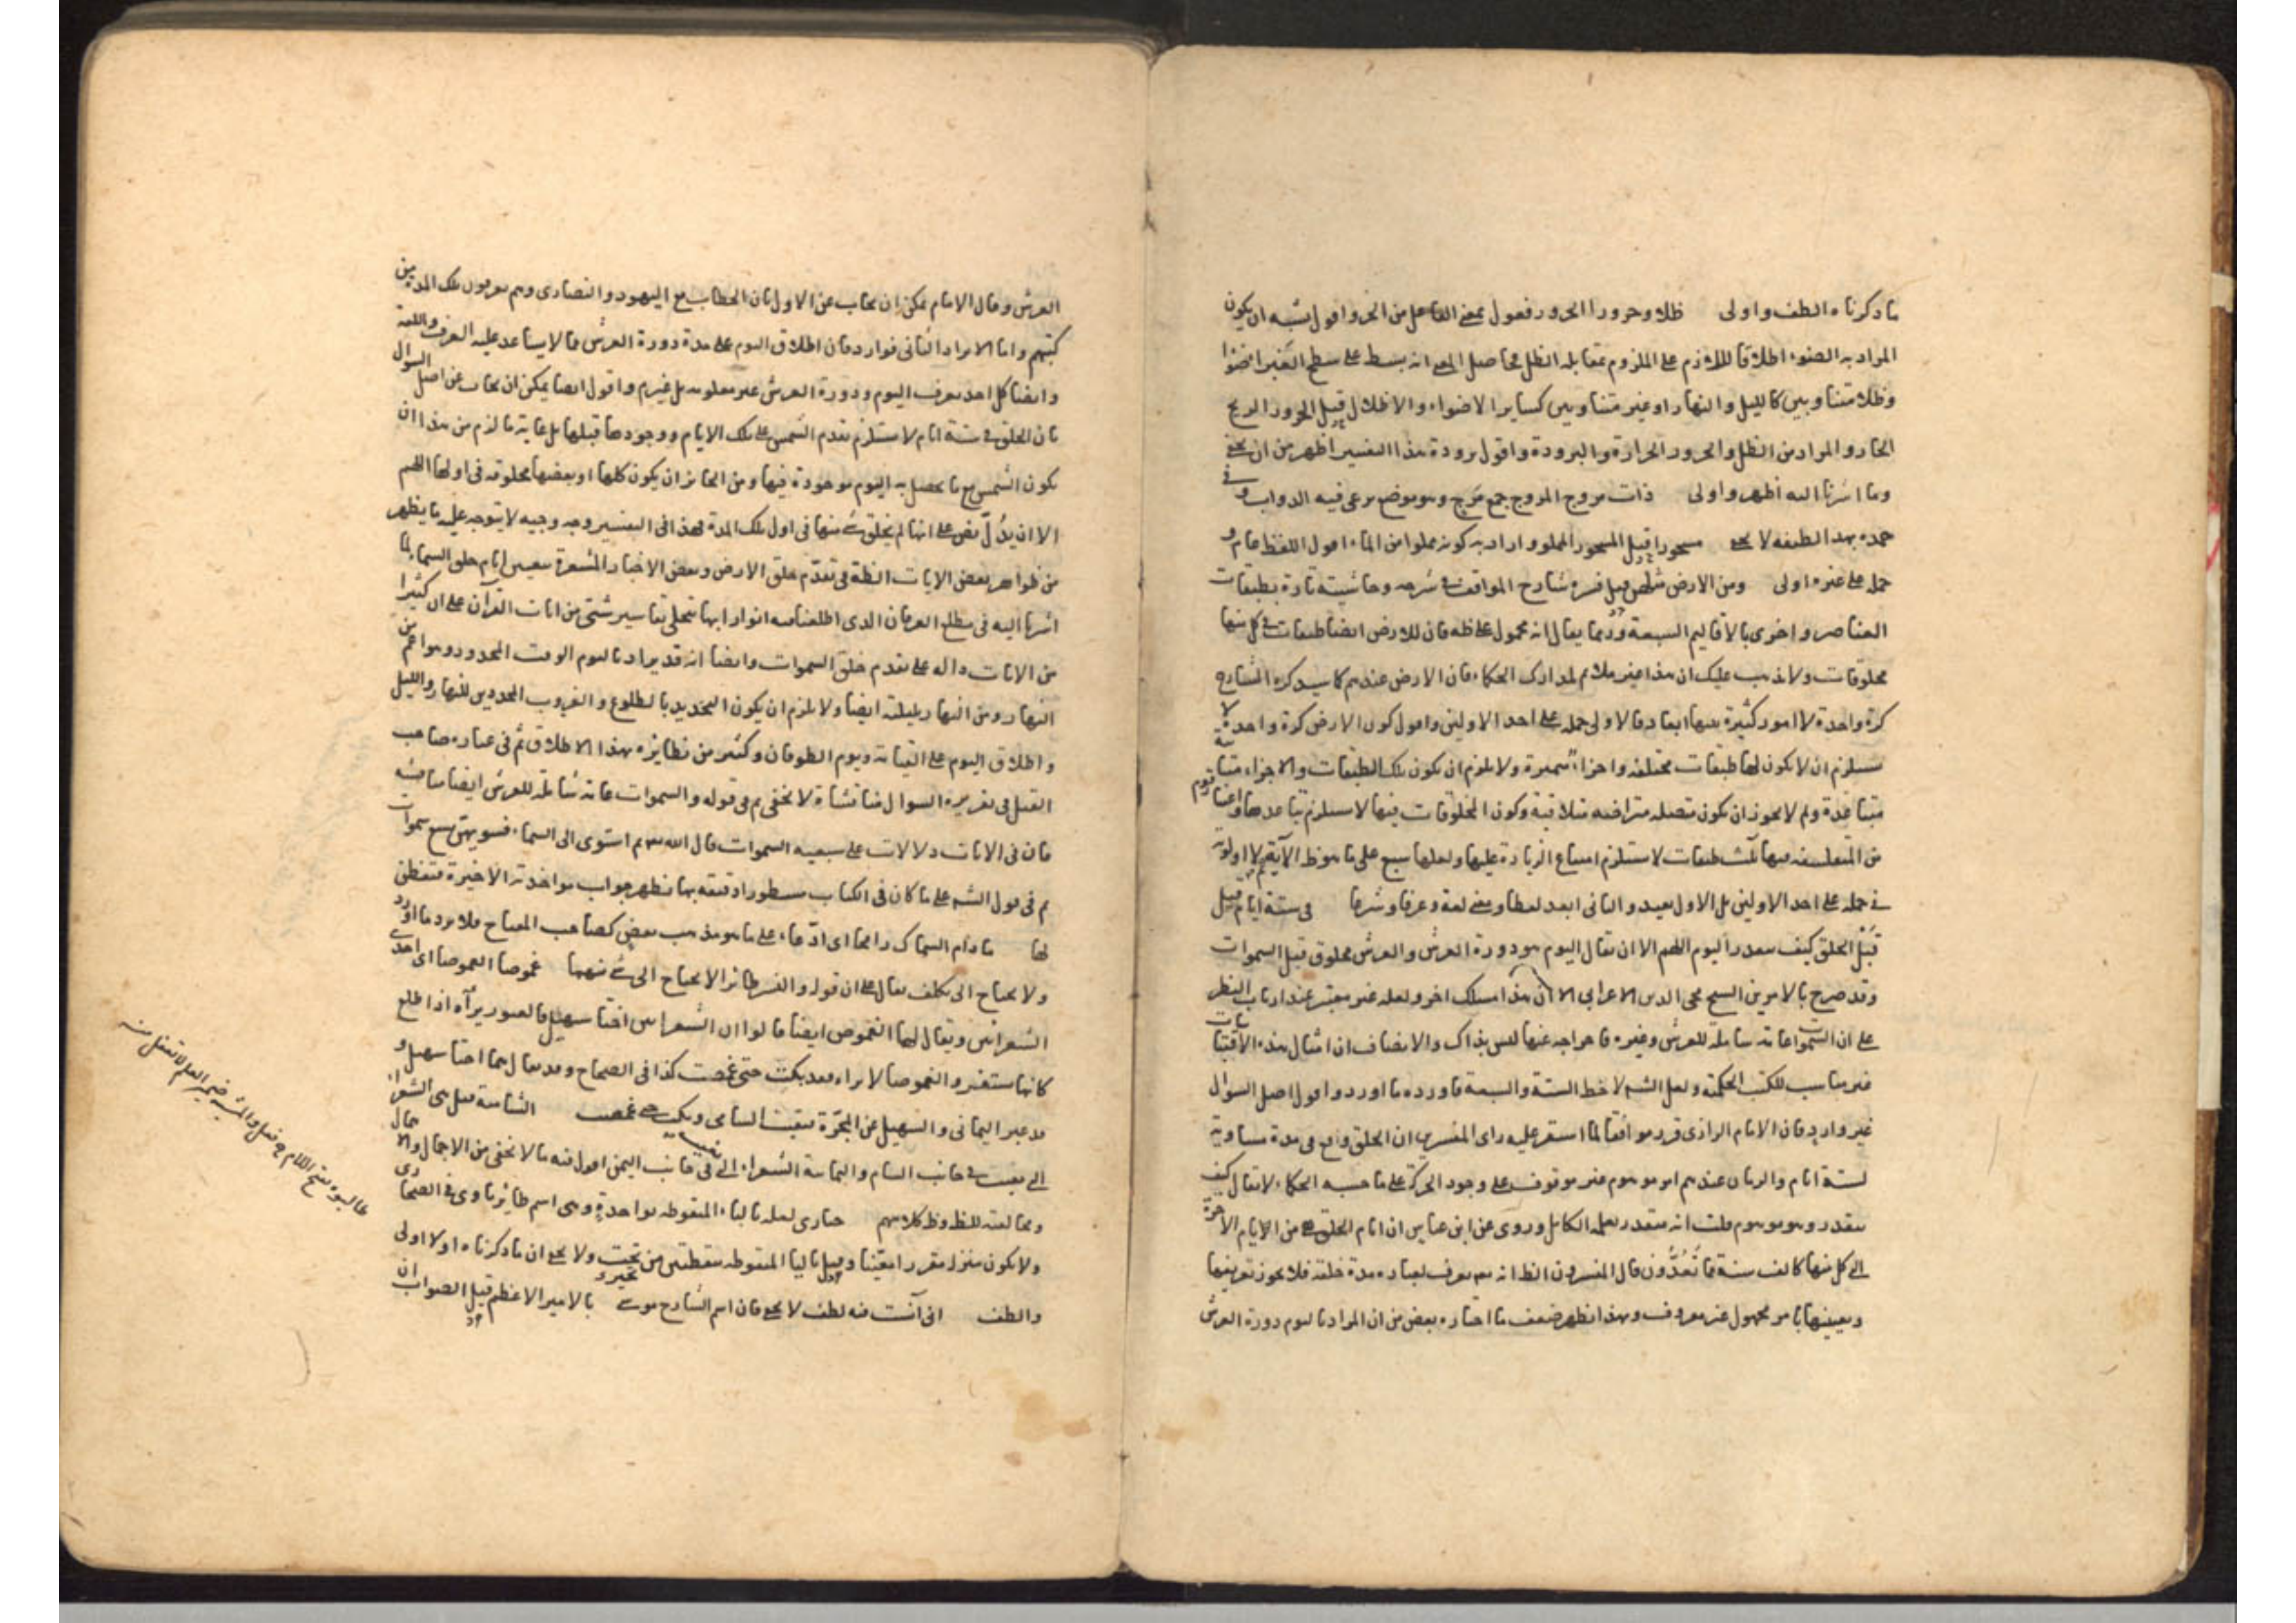 ما ذكرناه الطف واولى ظلا وحرورا الحرور فعول بمعنى الفاعل من الحر واقول يشبه ان يكون
المراد به الضوء اطلاقا للازم على الملزوم بمقابلة الظل فحاصل المعنى انه بسط على سطح الغبراء ضوءا
وظلا متناوبين كالليل والنهار او غير متناوبين كساير الاضواء والاظلال قيل الحرور الريح
الحار والمراد من الظل والحرور الحرارة والبرودة واقول برودة هذا التفسير اظهر من ان يخفى
وما اشرنا اليه اظهر واولى ذات مروج المروج جمع مرج وهو موضع يرعى فيه الدواب وفي
حمده بهذا لطيفة لا يخفى مسجورا قيل المسجور المملو واراد به كونه مملوا من الماء اقول اللفظ عام و
حمله على غيره اولى ومن الارض مثلهن قيل فسره شارح المواقف في شرحه وحاشيته تارة بطبقات
العناصر واخرى بالاقاليم السبعة وربما يقال انه محمول على ظاهره فان للارض ايضا طبقات في كل منها
مخلوقات ولا يذهب عليك ان هذا غير ملائم لمدارك الحكماء فان الارض عندهم كما سيذكره الشارح
كرة واحدة لا امور كثيرة بينها ابعاد فالاولى حمله على احد الاولين واقول كون الارض كرة واحدة لا
يستلزم ان لا يكون لها طبقات مختلفة واجزاء متميزة ولا يلزم ان يكون تلك الطبقات والاجزاء
متباعدة ولم لا يجوز ان يكون متصلة متراصة متلاقية وكون المخلوقات فيها لا يستلزم تباعدها
من المتفلسفة فيها ثلث طبقات لا يستلزم امتناع الزيادة عليها ولعلها سبع على ما هو ظ الآية ثم لا اولوية
في حمله على احد الاولين بل الاول بعيد والثاني ابعد لفظا ومعنى لغة وعرفا وشرعا في ستة ايام قيل
قبل الخلق كيف يتقدر اليوم اللهم الا ان يقال اليوم هو دورة العرش والعرش مخلوق قبل السموات
وقد صرح بالامرين الشيخ محي الدين الاعرابي الا ان هذا مسلك اخر ولعله غير معتبر عند ارباب النظر
على ان السموات عامة شاملة للعرش وغيره فاخراجه عنها ليس بذاك والانصاف ان امثال هذه
غير مناسب للكتب الحكمية ولعل الشه لاحظ الستة والسبعة فاورده ما اورد واقول اصل السوال
غير وارد فان الامام الرازي قرر موافقا لما استقر عليه راى المفسرين ان الخلق واقع في مدة مساوية
لستة ايام والزمان عندهم امر موهوم غير موقوف على وجود الحركة على ما حسبه الحكماء لا يقال كيف
يتقدر وهو موهوم قلت انه متقدر بعلمه الكامل وروى عن ابن عباس ان ايام الخلق هي من الايام الاخرة
التي كل منها كالف سنة مما تعدون قال المفسرون الظ انه تعالى يعرف لعباده مدة خلقه فلا يجوز تعريفها
وتعيينها بامر مجهول غير معروف وبهذا يظهر ضعف ما اختاره بعض من ان المراد باليوم دورة العرش
العرش وقال الامام يمكن ان يجاب عن الاول بان الخطاب مع اليهود والنصارى وهم يعرفون تلك المدة من
كتبهم واما الايراد الثاني فوارد فان اطلاق اليوم على مدة دورة العرش مما لا يساعد عليه العرف واللغة
وايضا كل احد يعرف اليوم ودورة العرش غير معلومة بل غيرهم واقول ايضا يمكن ان يجاب عن اصل السوال
بان الخلق في ستة ايام لا يستلزم تقدم الشمس على تلك الايام ووجودها قبلها بل غاية ما لزم من هذا ان
يكون الشمس مع ما يحصل به اليوم موجودة فيها ومن الجائز ان يكون كلها او بعضها مخلوقة في اولها اللهم
الا ان يدل نص على انها لم يخلق شئ منها في اول تلك المدة فهذا في التفسير وجه وجيه لا يتوجه عليه ما يظهر
من ظواهر بعض الايات الظة في تقدم خلق الارض وبعض الاخبار المشعرة بتعيين ايام خلق السماء لما
اشرنا اليه في مطلع العرفان الذي اطلعنا فيه انوارا بها تنجلي تفاسير شتى من ايات القرآن على ان كثيرا
من الايات دالة على تقدم خلق السموات وايضا انه قد يراد باليوم الوقت المحدود وهو اعم من
النهار ومن النهار بليلته ايضا ولا يلزم ان يكون التحديد بالطلوع والغروب المحددين للنهار والليل
واطلاق اليوم على القيامة ويوم الطوفان وكثير من نظائره بهذا الاطلاق ثم في عبارة صاحب
القيل في تقريره السوال مناقشات لا تخفى ثم في قوله والسموات عامة شاملة للعرش ايضا مناقشة
فان في الايات دلالات على سبعية السموات قال الله تعالى ثم استوى الى السماء فسويهن سبع سموات
ثم في قول الشه على ما كان في الكتاب مسطورا دقيقة بها يظهر جواب مواخذته الاخيرة فتفطن
لها ما دام السماك رامحا اى ادعاء على ما هو مذهب بعض كصاحب المفتاح فلا يرد ما اورد
ولا يحتاج الى تكلف يقال على ان قوله والنسر طائرا لا يحتاج الى شئ منهما غموصا الغموصا اى احدى
الشعراتين ويقال لها الغموص ايضا قالوا ان الشعراتين اختا سهيل فالعبور يراه اذا اطلع
كانها ستعبر والغموصا لا يراه فقد بكت حتى غمصت كذا في الصحاح وقد يقال هما اختا سهيل و
قد عبر اليماني والسهيل عن المجرة فبقيت الشامي وبكت حتى غمصت الشامية قيل هى الشعراء
التي تغيب في جانب الشام واليمانية الشعراء التي تغيب في جانب اليمن اقول فيه ما لا يخفى من الاجمال والاهمال
ومخالفة للظ وظ كلامهم حبارى لعله بالباء المنقوطة بواحدة وهى اسم طائر ماوى في الصحارى
ولا يكون منزل مقررا معينا وقيل باليا المنقوطة بنقطتين من تحت ولا يخفى ان ما ذكرناه اولا اولى
والطف انى آنست فيه لطف لا يخفى فان اسم الشارح موسى بالامير الاعظم قيل الصواب ان